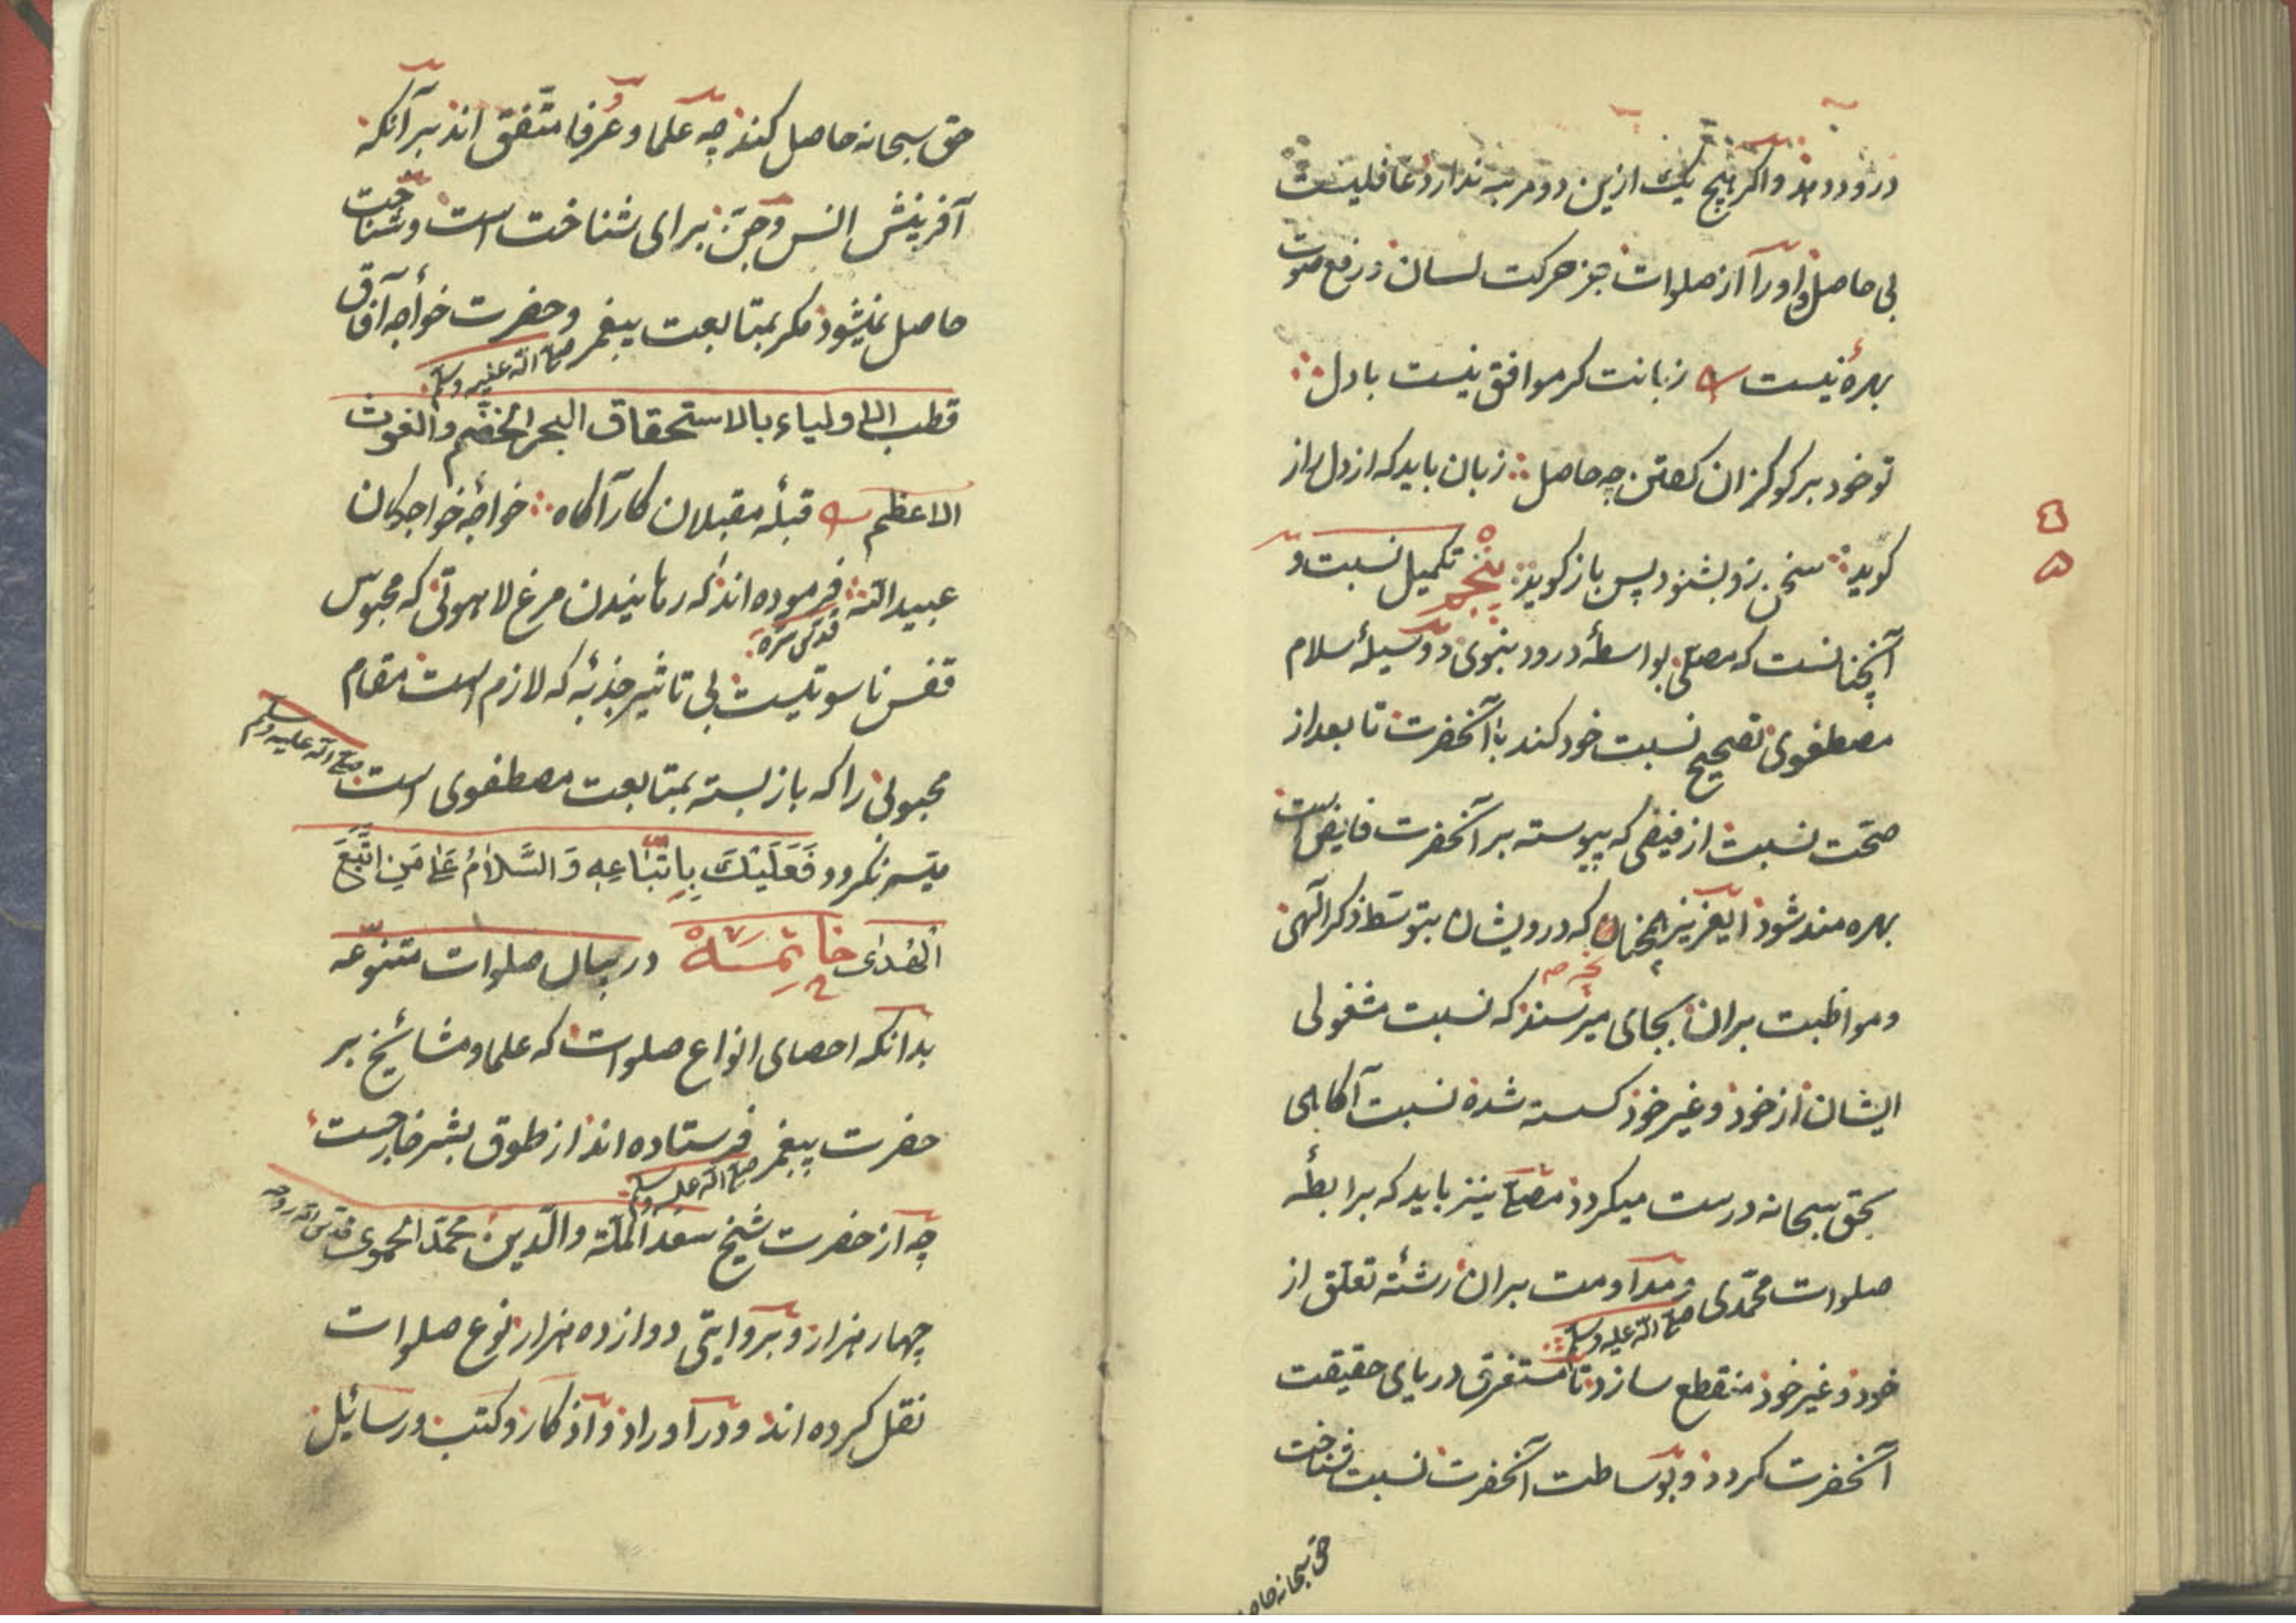 درود دهد و اکر هیچ یک ازین دو مرتبه ندارد غافلیست
بی حاصل و اورا از صلوات جز حرکت لسان و رفع صوت
بهره نیست زبانت کر موافق نیست با دل
تو خود بر کو کزان کفتن چه حاصل زبان باید که از دل راز
کوید سخن زو بشنود پس باز کوید پنجم تکمیل نسبت و
آنچنانست که مصلی بواسطهٔ درود نبوی و وسیلهٔ سلام
مصطفوی تصحیح نسبت خود کند با آنحضرت تا بعد از
صحّت نسبت از فیضی که پیوسته بر آنحضرت فایض است
بهره مند شود ایعزیز همچنان که درویشان بتوسّط ذکر الهی
و مواظبت بران بجای میرسند که نسبت مشغولی
ایشان از خود و غیر خود کسسته شده نسبت آکاهی
بحق سبحانه درست میکردد مصلّی نیز باید که برابطهٔ
صلوات محمّدی صلی الله علیه وسلم و مداومت بران رشتهٔ تعلّق از
خود و غیر خود منقطع سازد تا مستغرق دریای حقیقت
آنحضرت کردد و بوساطت آنحضرت نسبت شناخت
حق سبحانه حاصل
حق سبحانه حاصل کند چه علما و عُرفا متّفق اند بر آنکه
آفرینش انس و جنّ برای شناخت است و شناخت
حاصل نمیشود مکر بمتابعت پیغمبر صلی الله علیه وسلم و حضرت خواجه آفاق
قطب الاولیاء بالاستحقاق البحر الخضم والغوث
الاعظم قبلهٔ مقبلان کار آکاه خواجهٔ خواجکان
عبید الله قدس سره فرموده اند که رهانیدن مرغ لاهوتی که محبوس
قفس ناسوتیست بی تاثیر جذبهٔ که لازم است مقام
محبوبی را که باز بسته بمتابعت مصطفوی است صلی الله علیه وسلم
میسّر نکردد فَعَلَیْکَ بِاتِّبَاعِهِ وَالسَّلَامُ عَلٰی مَنِ اتَّبَعَ
الْهُدٰی خَاتِمَه در بیان صلوات متنوّعه
بدانکه احصای انواع صلوات که علما و مشائخ بر
حضرت پیغمبر صلی الله علیه وسلم فرستاده اند از طوق بشر خارجست
چه از حضرت شیخ سعد الملّة والدّین محمّد الحموی قدّس الله روحه
چهار هزار و بروایتی دوازده هزار نوع صلوات
نقل کرده اند و در آوراد و اذکار و کتب و رسائل